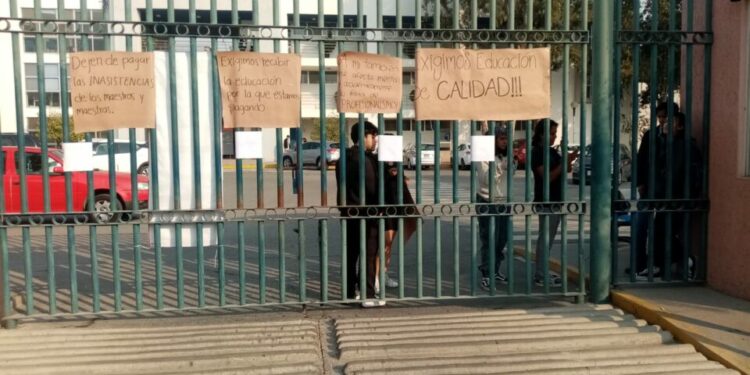 Dejen de pagar
las INASISTENCIA
de los maestros y
maestras.
Exigimos recibir
la educación
por la que estamos
pagando.
mi
afecta
académicamente
falta de
PROFESIONALISMO!
Exigimos Educación
de CALIDAD!!!